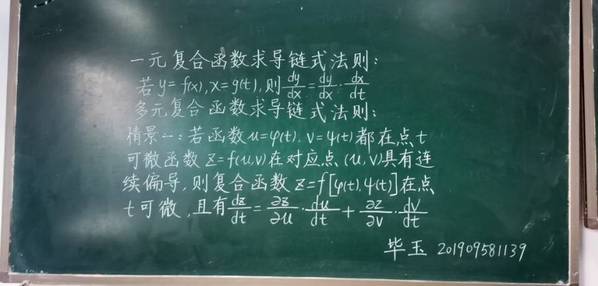 一元复合函数求导链式法则:
若y=f(x),x=g(t),则dy/dx=dy/dx·dx/dt
多元复合函数求导链式法则:
情景一:若函数u=φ(t),v=ψ(t)都在点t
可微函数z=f(u,v)在对应点(u,v)具有连
续偏导,则复合函数z=f[φ(t),ψ(t)]在点
t可微,且有dz/dt=∂z/∂u·du/dt+∂z/∂v·dv/dt
毕玉 201909581139